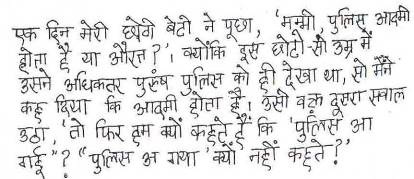 एक दिन मेरी छोटी बेटी ने पूछा, 'मम्मी, पुलिस आदमी
होता है या औरत?'। क्योंकि इस छोटी-सी उम्र में
उसने अधिकतर पुरुष पुलिस को ही देखा था, सो मैंने
कह दिया कि आदमी होता है। उसी वक़्त दूसरा सवाल
उठा, 'तो फिर हम क्यों कहते हैं कि 'पुलिस आ
गई"? "पुलिस आ गया' क्यों नहीं कहते?'